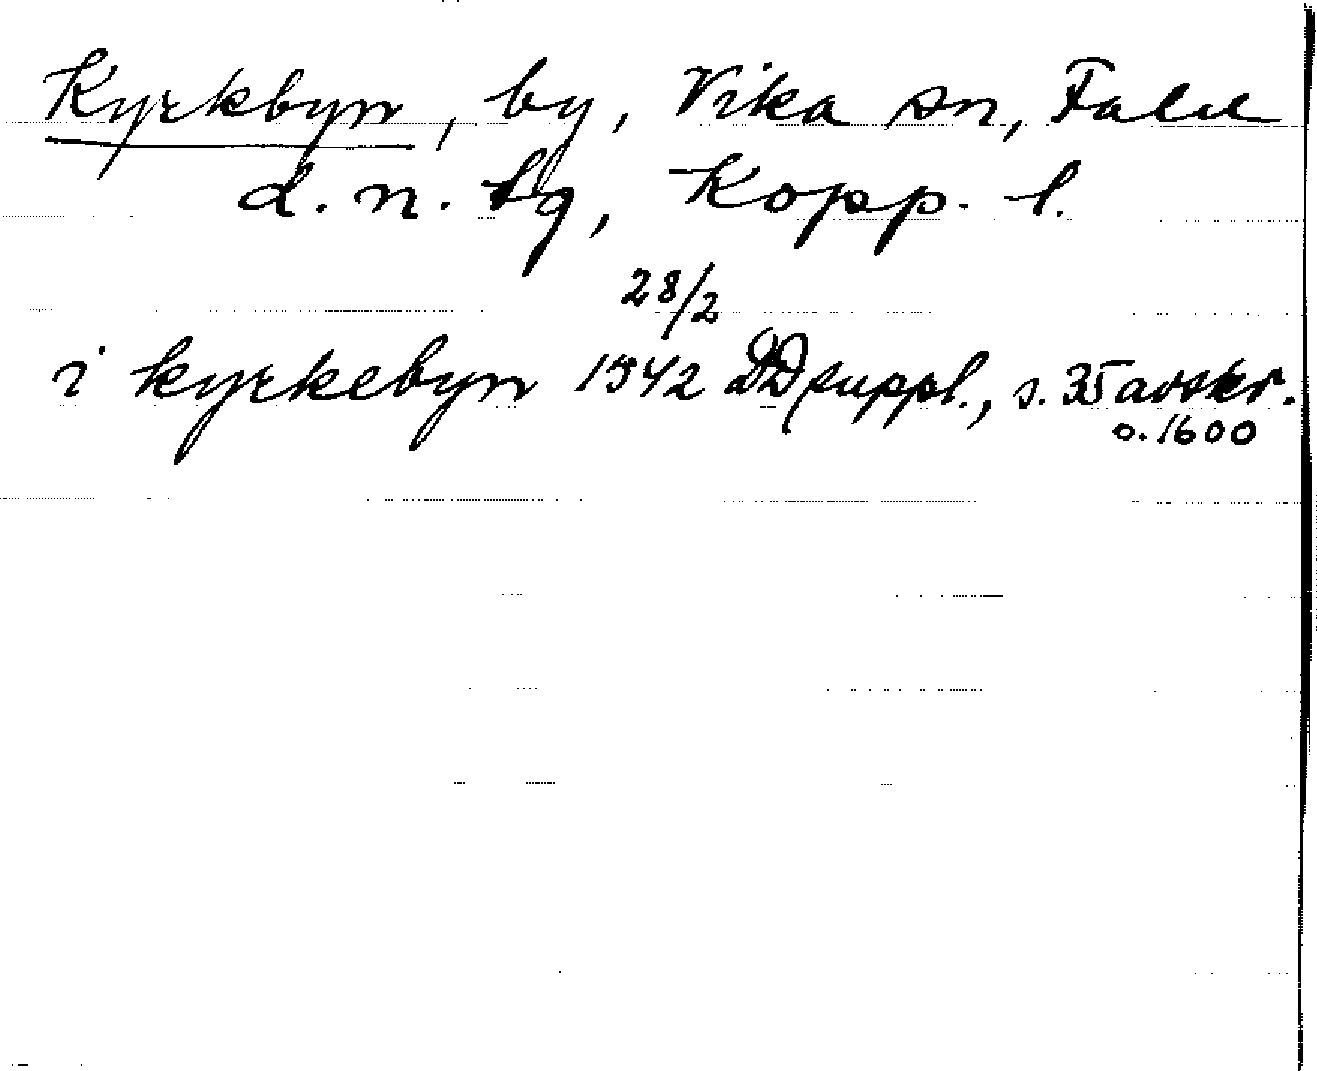 Kyrkbyn, by, Vika sn, Falu
d. n. tg, Kopp. l.
28/2
i kyrkebyn 1542 DD suppl., s. 35 avskr.
o. 1600